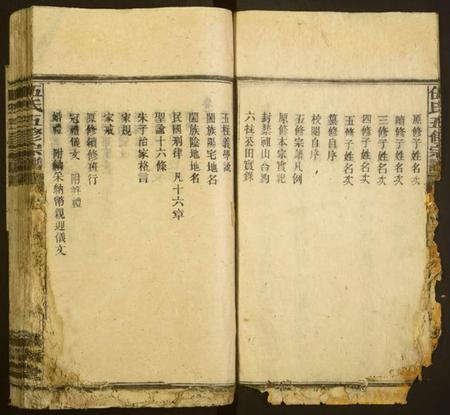 伍氏五修宗譜
原修子姓名次
續修子姓名次
三修子姓名次
四修子姓名次
五修子姓名次
墓修自序
校閱自序
五修宗譜凡例
原修本宗實記
封禁祖山合約
六柱公田實錄
玉程義學誌
闔族陽宅地名
闔族陰地地名
民國刑律 凡十六章
聖諭十六條
朱子治家格言
家規
家戒
原修續修班行
冠禮儀文 附笄禮
婚禮 附納采納幣親迎儀文
伍氏五修宗譜